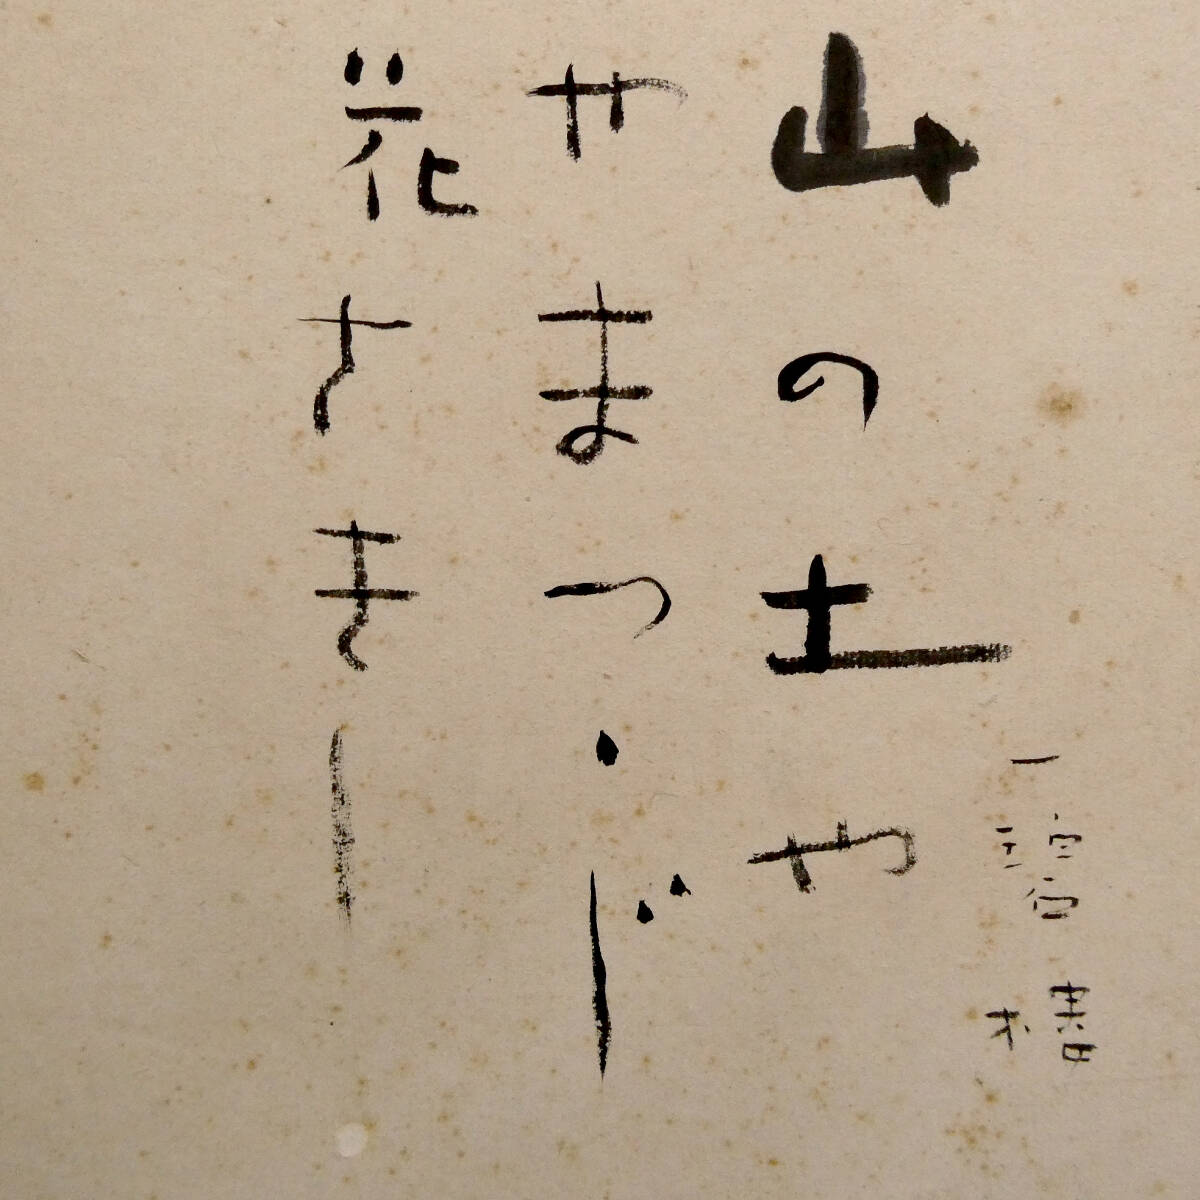 一碧樓
山の土や
やまつゝじ
花さきし